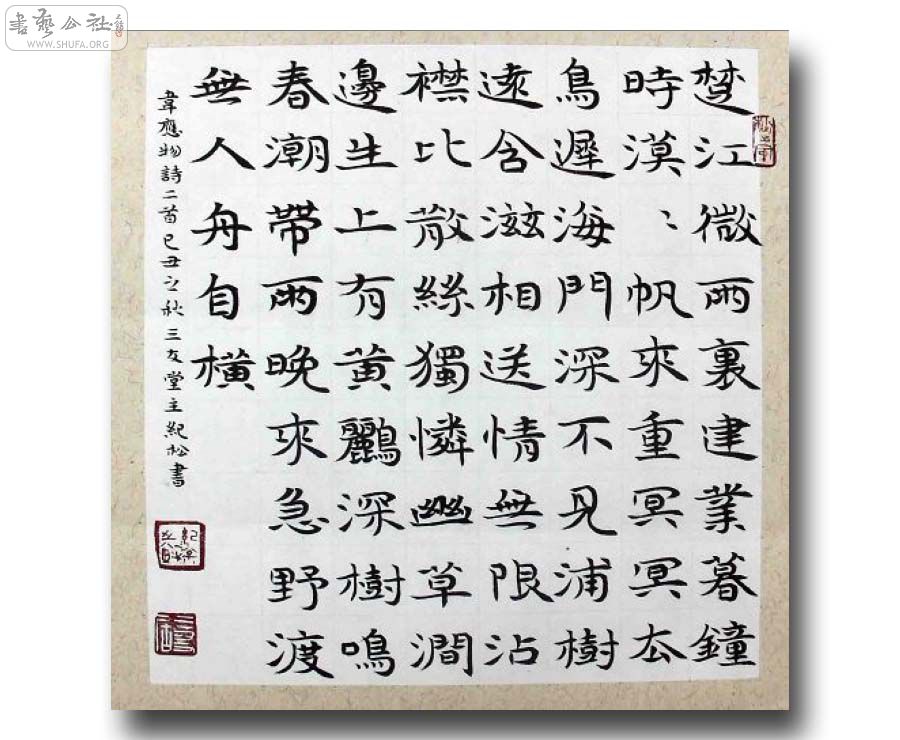 書藝公社
WWW.SHUFA.ORG
楚江微雨裏建業暮鐘
時漠〻帆來重冥冥厺
鳥遲海門深不見浦樹
遠含滋相送情無限沾
襟比散絲獨憐幽草澗
邊生上有黃鸝深樹鳴
春潮帶雨晚來急野渡
無人舟自橫
韋應物詩二首己丑之秋三友堂主紀松書